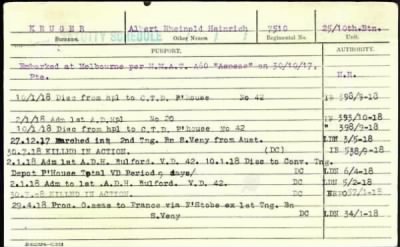 KRUGER Albert Rheinold Heinrich 7510 25/10th.Btn.
Surname. SCHEDULE Other Names Regimental No. Unit.
PURPORT. AUTHORITY.
Embarked at Melbourne per H.M.A.T. A60 "Aeneas" on 30/10/17.
Pte. N.R.
10/1/18 Disc from hpl to C.T.D. P'house No 42 398/9-18
2/1/18 Adm 1st A.D.Hpl No 20 393/10-18
10/1/18 Disc from hpl to C.T.D. P'house No 42 " 398/9-18
27.12.17 Marched in 2nd Tng. Bn S.Veny from Aust. LDN 3/5-18
30.7.18 KILLED IN ACTION. (DC) IB 538/9-18
2.1.18 Adm 1st A.D.H. Bulford. V.D. 42. 10.1.18 Disc to Conv. Tng.
Depot P'House Total VD Period 9 days/ DC LDN 6/4-18
2.1.18 Adm to 1st .A.D.H. Bulford. V.D. 42. DC LDN 5/2-18
KILLED IN ACTION. DC
29.4.18 Proc. O.seas to France via F'Stone ex 1st Tng. Bn
S.Veny DC LDN 34/1-18